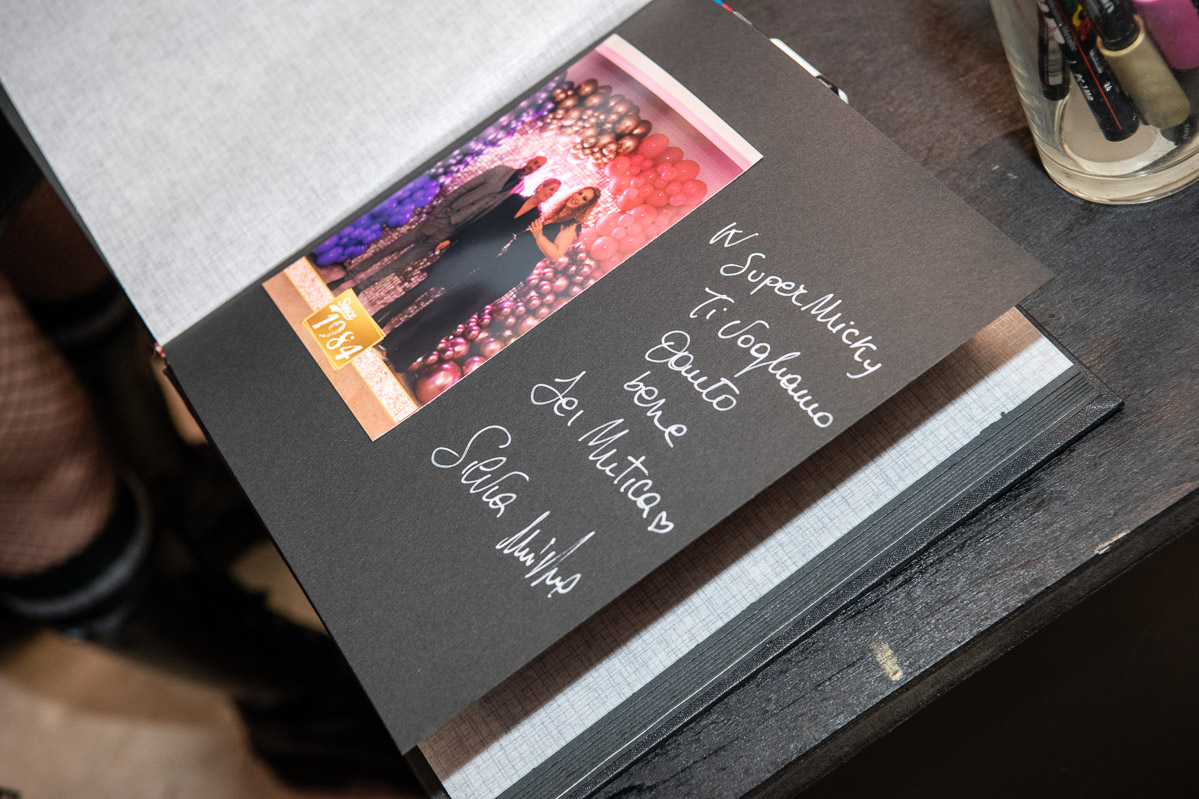 Since
1984
W SuperMicky
Ti Vogliamo
Tanto
bene
Sei Mitica
Silvia